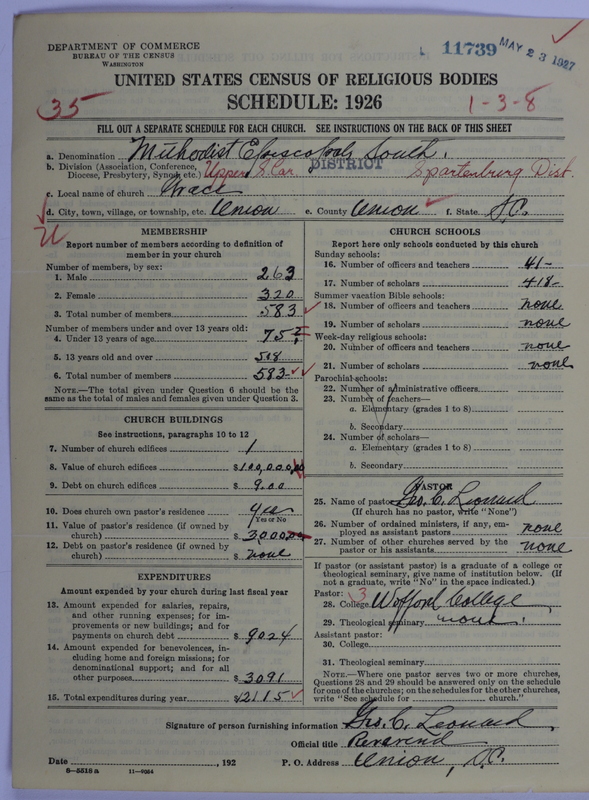 DEPARTMENT OF COMMERCE
BUREAU OF THE CENSUS
WASHINGTON
11739 MAY 23 1927
UNITED STATES CENSUS OF RELIGIOUS BODIES
SCHEDULE: 1926
35
1-3-8
FILL OUT A SEPARATE SCHEDULE FOR EACH CHURCH. SEE INSTRUCTIONS ON THE BACK OF THIS SHEET
a. Denomination Methodist Episcopal, South.
b. Division (Association, Conference, Diocese, Presbytery, Synod, etc.) Upper S. Car. DISTRICT Spartenburg Dist.
c. Local name of church Grace
d. City, town, village, or township, etc. Union e. County Union f. State S.C.
MEMBERSHIP
Report number of members according to definition of member in your church
Number of members, by sex:
1. Male 263
2. Female 320
3. Total number of members 583
Number of members under and over 13 years old:
4. Under 13 years of age 75
5. 13 years old and over 508
6. Total number of members 583
NOTE.—The total given under Question 6 should be the same as the total of males and females given under Question 3.
CHURCH BUILDINGS
See instructions, paragraphs 10 to 12
7. Number of church edifices 1
8. Value of church edifices $100,000.00
9. Debt on church edifices $ 9.00
10. Does church own pastor's residence yes
(Yes or No)
11. Value of pastor's residence (if owned by church) $ 3,000.00
12. Debt on pastor's residence (if owned by church) $ none
EXPENDITURES
Amount expended by your church during last fiscal year
13. Amount expended for salaries, repairs, and other running expenses; for improvements or new buildings; and for payments on church debt $ 9024
14. Amount expended for benevolences, including home and foreign missions; for denominational support; and for all other purposes $ 3091
15. Total expenditures during year $12115
CHURCH SCHOOLS
Report here only schools conducted by this church
Sunday schools:
16. Number of officers and teachers 41-
17. Number of scholars 418-
Summer vacation Bible schools:
18. Number of officers and teachers none
19. Number of scholars none
Week-day religious schools:
20. Number of officers and teachers none
21. Number of scholars none
Parochial schools:
22. Number of administrative officers
23. Number of teachers—
a. Elementary (grades 1 to 8)
b. Secondary
24. Number of scholars—
a. Elementary (grades 1 to 8)
b. Secondary
PASTOR
25. Name of pastor Geo. C. Leonard
(If church has no pastor, write "None")
26. Number of ordained ministers, if any, employed as assistant pastors none
27. Number of other churches served by the pastor or his assistants none
If pastor (or assistant pastor) is a graduate of a college or theological seminary, give name of institution below. (If not a graduate, write "No" in the space indicated.)
Pastor: 3
28. College Wofford College
29. Theological seminary none.
Assistant pastor:
30. College
31. Theological seminary
NOTE.—Where one pastor serves two or more churches, Questions 28 and 29 should be answered only on the schedule for one of the churches; on the schedules for the other churches, write "See schedule for church."
Signature of person furnishing information Geo. C. Leonard
Official title Reverend
Date , 192 P. O. Address Union, S.C.
8-5518 a 11-9064